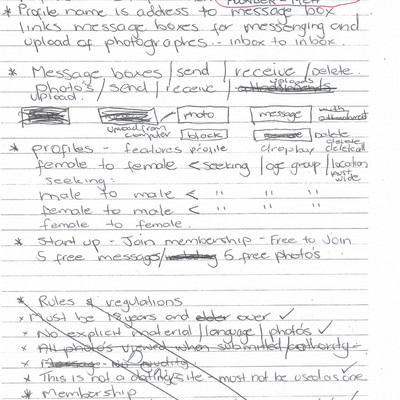 * Profile name is address to message box
links message boxes for messenging and
upload of photographs. - inbox to inbox.
* Message boxes / send / receive / delete.
Photo's / send / receive / uploads
upload.
photo message with
upload from computer block delete
* Profiles - features profile dropbox
female to female < seeking / age group / location
seeking:
male to male < " " "
female to male < " " "
female to female.
* Start up - Join membership - Free to join
5 free messages / 5 free photo's
* Rules & regulations
* Must be 18 years and older over ✓
* No explicit material / language / photos ✓
* All photo's viewed when submitted / authority.
* Message - No nudity
* This is not a dating site - must not be used as one
* Membership